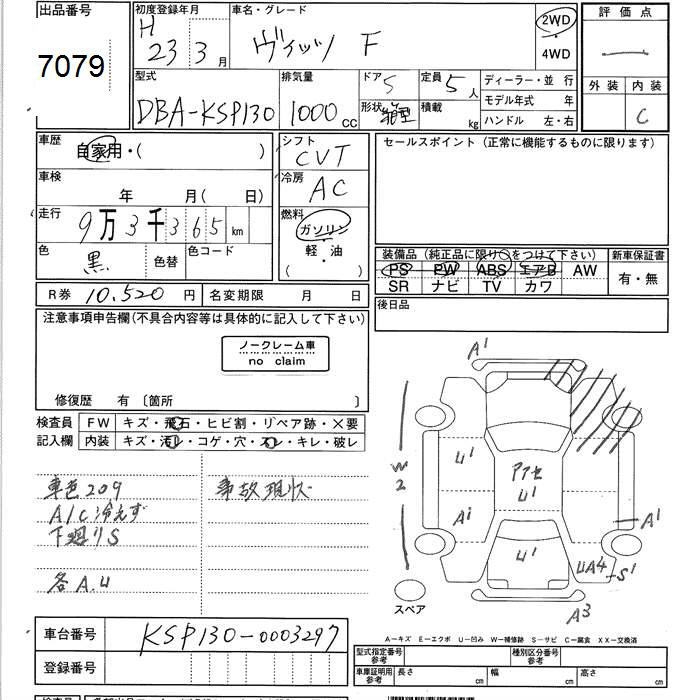 出品番号
7079
初度登録年月
H 23 3月
車名・グレード
ヴィッツ F
2WD
4WD
評価点
外装 内装
C
型式
DBA-KSP130
排気量
1000 cc
ドア 5
形状 箱型
定員 5人
積載 kg
ディーラー・並 行
モデル年式 年
ハンドル 左・右
車歴
自家用・( )
シフト
CVT
車検
年 月( 日)
冷房
AC
走行
9万3千365km
燃料
ガソリン
軽・油
( )
色
黒
色替
色コード
R券 10.520 円
名変期限 月 日
セールスポイント(正常に機能するものに限ります)
装備品(純正品に限り○をつけて下さい)
PS PW ABS エアB AW
SR ナビ TV カワ
新車保証書
有・無
後日品
注意事項申告欄(不具合内容等は具体的に記入して下さい)
ノークレーム車
no claim
修復歴 有〔箇所 〕
検査員
記入欄
FW キズ・飛石・ヒビ割・リペア跡・×要
内装 キズ・汚レ・コゲ・穴・スレ・キレ・破レ
車色209
A/C冷えず
下廻りS
各A.U
事故現状
A1
W2
U1
アカセ
U1
A1
A1
U1
UA4
S1
A3
スペア
A-キズ E-エクボ U-凹み W-補修跡 S-サビ C-腐食 XX-交換済
車台番号
KSP130-0003297
登録番号
型式指定番号
参考
種別区分番号
参考
車庫証明用
参考
長さ cm
幅 cm
高さ cm